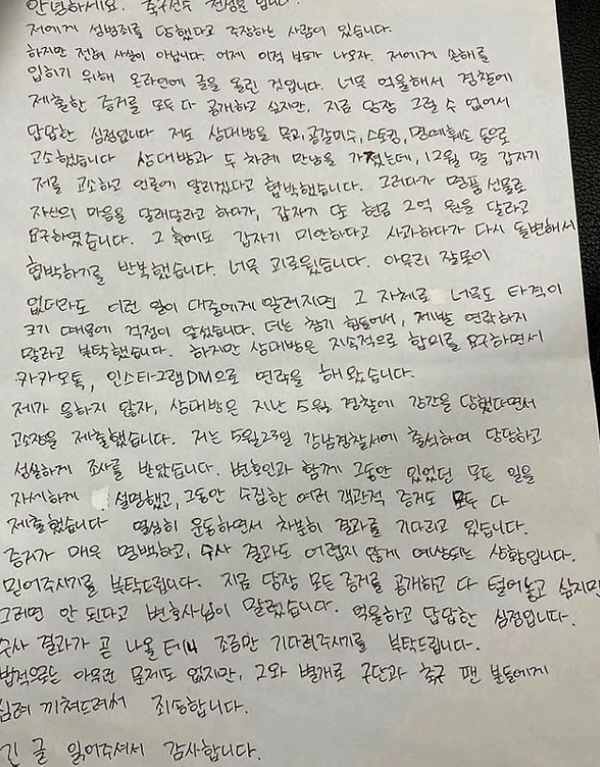 안녕하세요. 축구선수 입니다.
저에게 성범죄를 당했다고 주장하는 사람이 있습니다.
하지만 전혀 사실이 아닙니다. 어제 이적 보도가 나오자. 저에게 손해를
입히기 위해 온라인에 글을 올린 것입니다. 너무 억울해서 경찰에
제출한 증거를 모두 다 공개하고 싶지만, 지금 당장 그럴 수 없어서
답답한 심정입니다 저도 상대방을 무고, 공갈미수, 스토킹, 명예훼손 등으로
고소했습니다 상대방과 두 차례 만남을 가졌는데, 12월 말 갑자기
저를 고소하고 언론에 알리겠다고 협박했습니다. 그러다가 명품 선물로
자신의 마음을 달래달라고 하다가, 갑자기 또 현금 2억 원을 달라고
요구하였습니다. 그 후에도 갑자기 미안하다고 사과하다가 다시 돌변해서
협박하기를 반복했습니다. 너무 괴로웠습니다. 아무리 잘못이
없더라도 이런 일이 대중에게 알려지면 그 자체로 너무도 타격이
크기 때문에 걱정이 앞섰습니다. 더는 참기 힘들어서, 제발 연락하지
말라고 부탁했습니다. 하지만 상대방은 지속적으로 합의를 요구하면서
카카오톡, 인스타그램DM으로 연락을 해왔습니다.
제가 응하지 않자, 상대방은 지난 5월 경찰에 강간을 당했다면서
고소장을 제출했습니다. 저는 5월23일 강남경찰서에 출석하여 당당하고
성실하게 조사를 받았습니다. 변호인과 함께 그동안 있었던 모든 일을
자세하게 설명했고, 그동안 수집한 여러 객관적 증거도 모두 다
제출했습니다 열심히 운동하면서 차분히 결과를 기다리고 있습니다.
증거가 매우 명백하고, 수사 결과도 어렵지 않게 예상되는 상황입니다.
믿어주시기를 부탁드립니다. 지금 당장 모든 증거를 공개하고 다 털어놓고 싶지만
그러면 안 된다고 변호사님이 말렸습니다. 억울하고 답답한 심정입니다.
수사 결과가 곧 나올 테니 조금만 기다려주시기를 부탁드립니다.
법적으로는 아무런 문제도 없지만, 그와 별개로 구단과 축구 팬 분들에게
심려 끼쳐드려서 죄송합니다.
긴 글 읽어주셔서 감사합니다.